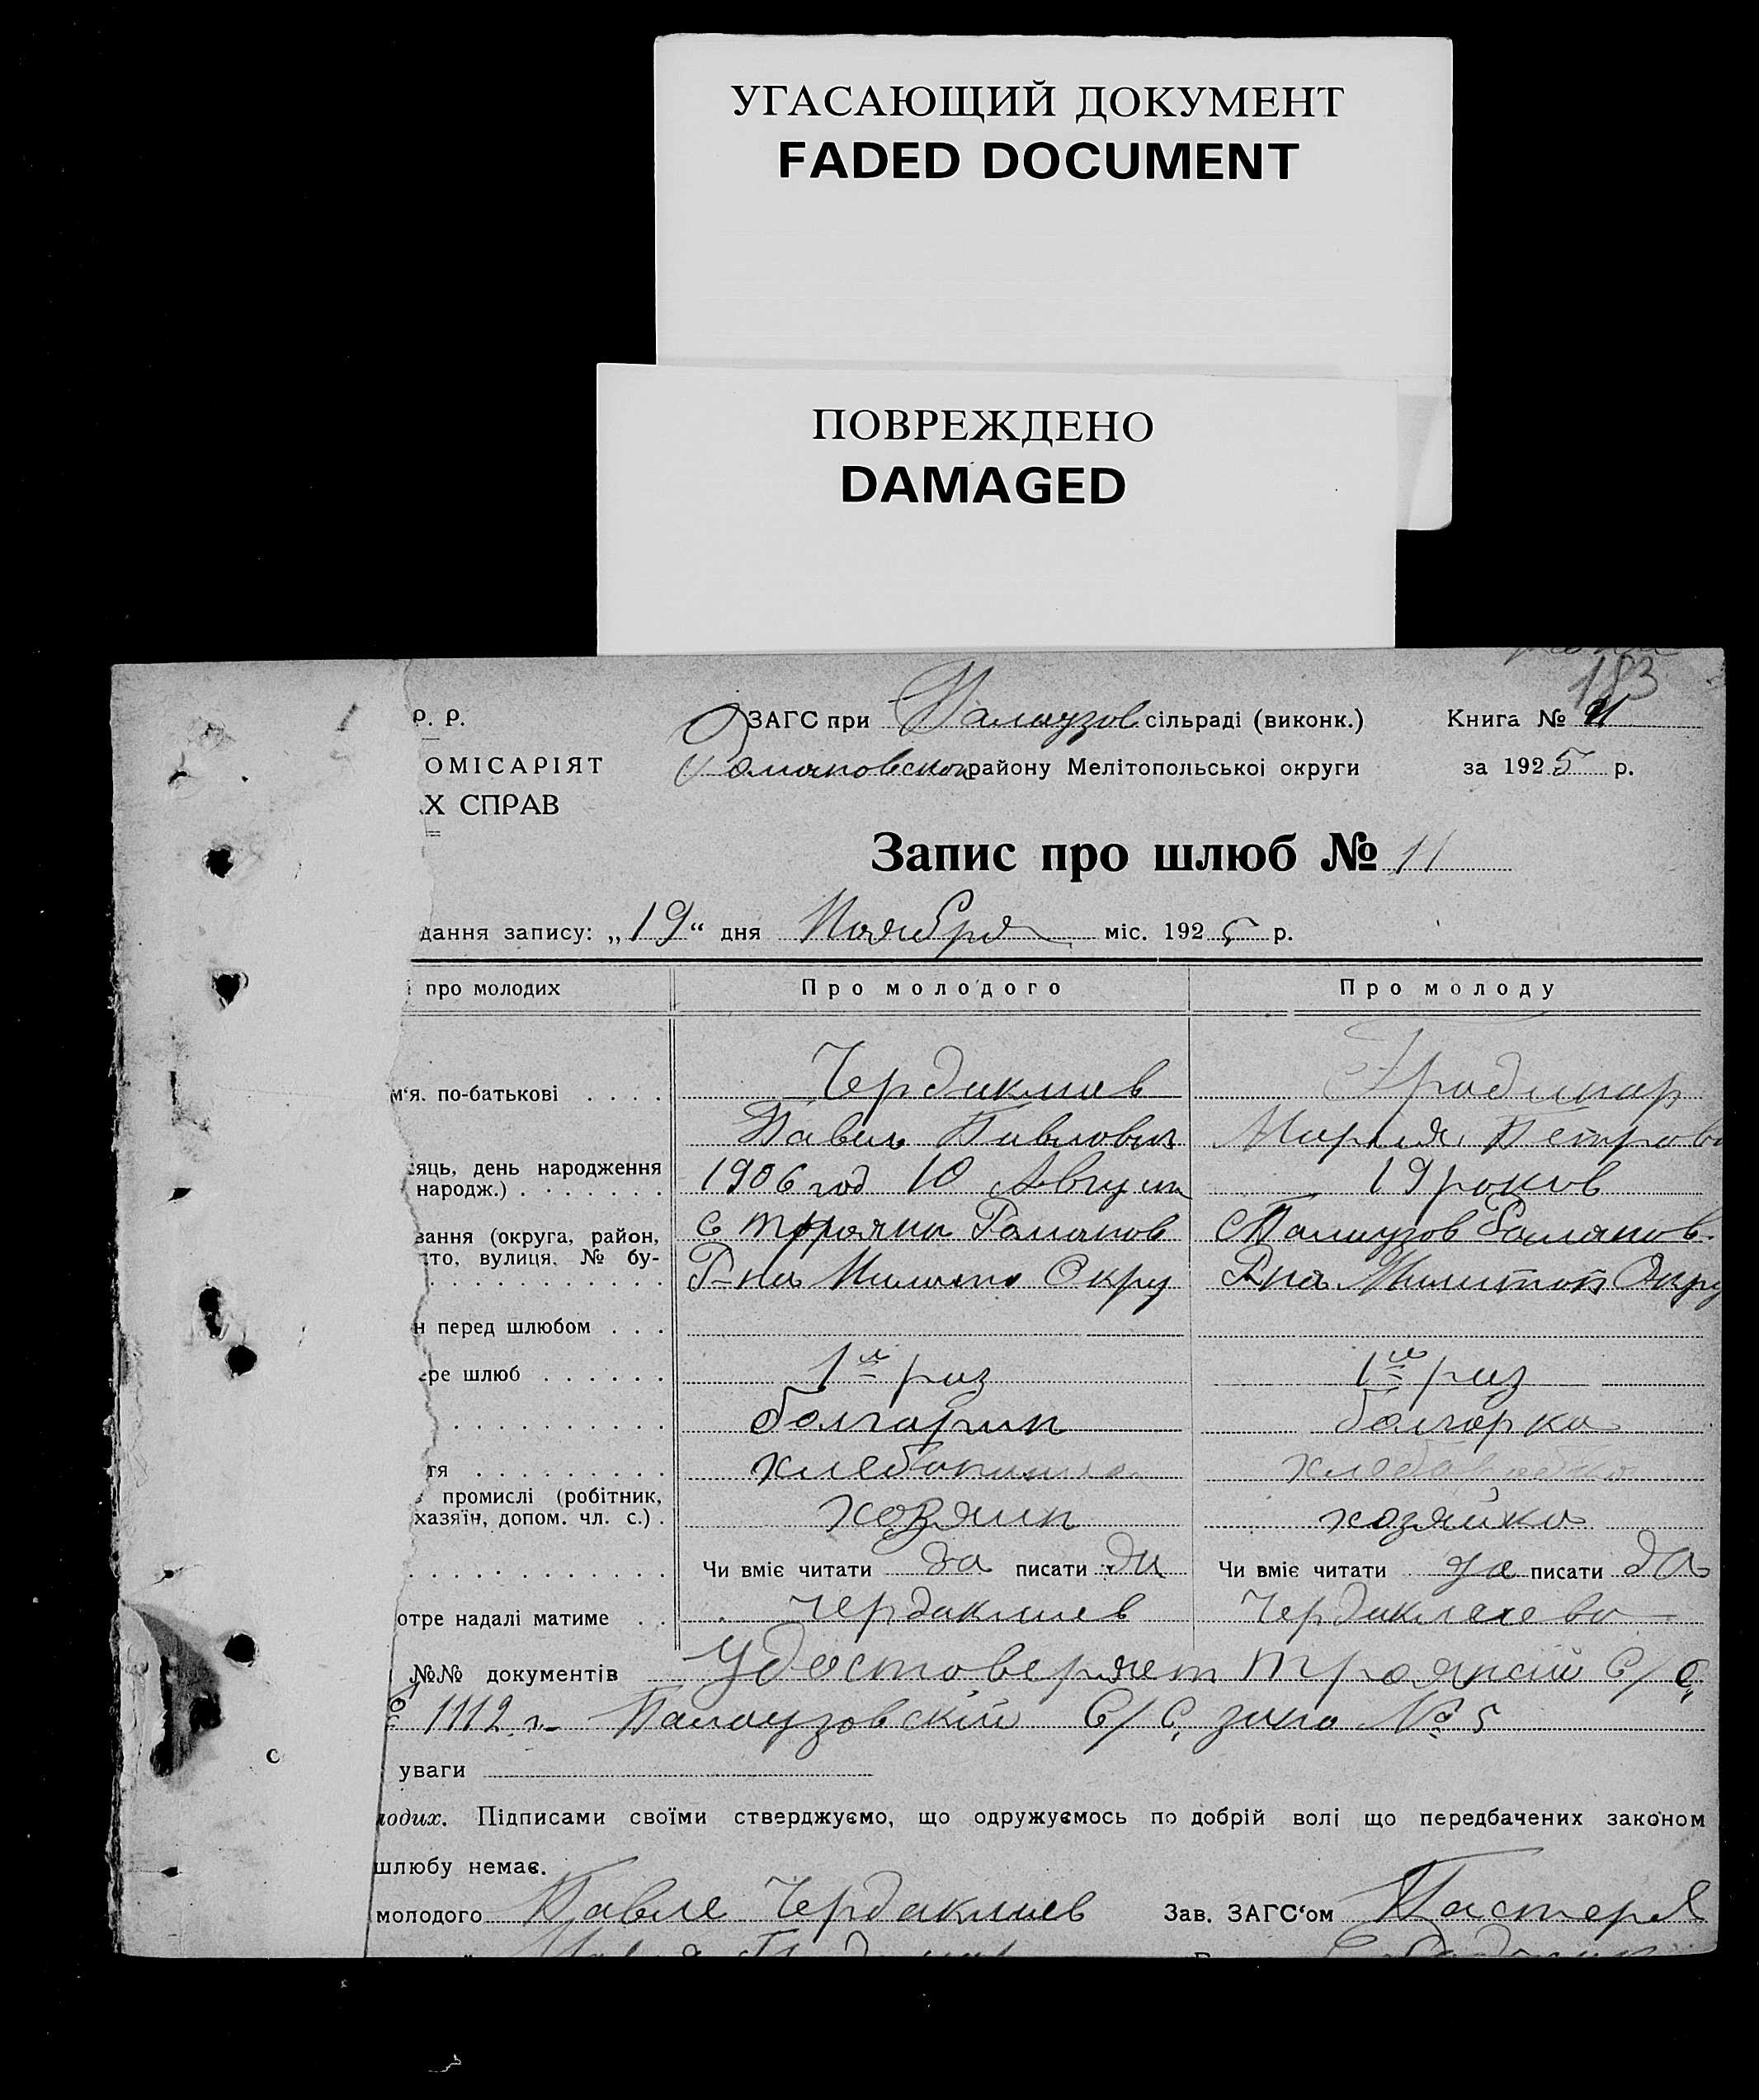 УГАСАЮЩИЙ ДОКУМЕНТ
FADED DOCUMENT
ПОВРЕЖДЕНО
DAMAGED
183
Р. Р.
ЗАГС при Палаузов сільраді (виконк.)
Книга №
ОМІСАРІЯТ
Романовском району Мелітопольської округи
за 1925 р.
Х СПРАВ
Запис про шлюб № 11
дання запису: „19" дня Ноября міс. 1925 р.
про молодих
Про молодого
Про молоду
м'я. по-батькові . . . .
Чердаклиев
Градинар
Павел Павлович
Мария Петров
сяць, день народження
народж.) . . . . . . .
1906 год 10 Август
19 роков
вання (округа, район,
сто, вулиця, № бу-
с Трояна Романов
с Палаузов Романов.
Р-на Округ
Р-на Мелитоп Окру
н перед шлюбом . . .
ере шлюб . . . . . .
1й раз
1й раз
болгарин
болгарка
тя . . . . . . . . .
промислі (робітник,
хазяїн, допом. чл. с.) .
хозяин
хозяйка
Чи вміє читати да писати да
Чи вміє читати да писати да
отре надалі матиме . .
Чердаклиев
Чердаклиева
№№ документів Удостоверяет Троянский С/С
1112 г. Палаузовский С/С № 5
уваги
лодих. Підписами своїми стверджуємо, що одружуємось по добрій волі що передбачених законом
шлюбу немає.
молодого Павле Чердаклиев
Зав. ЗАГС'ом